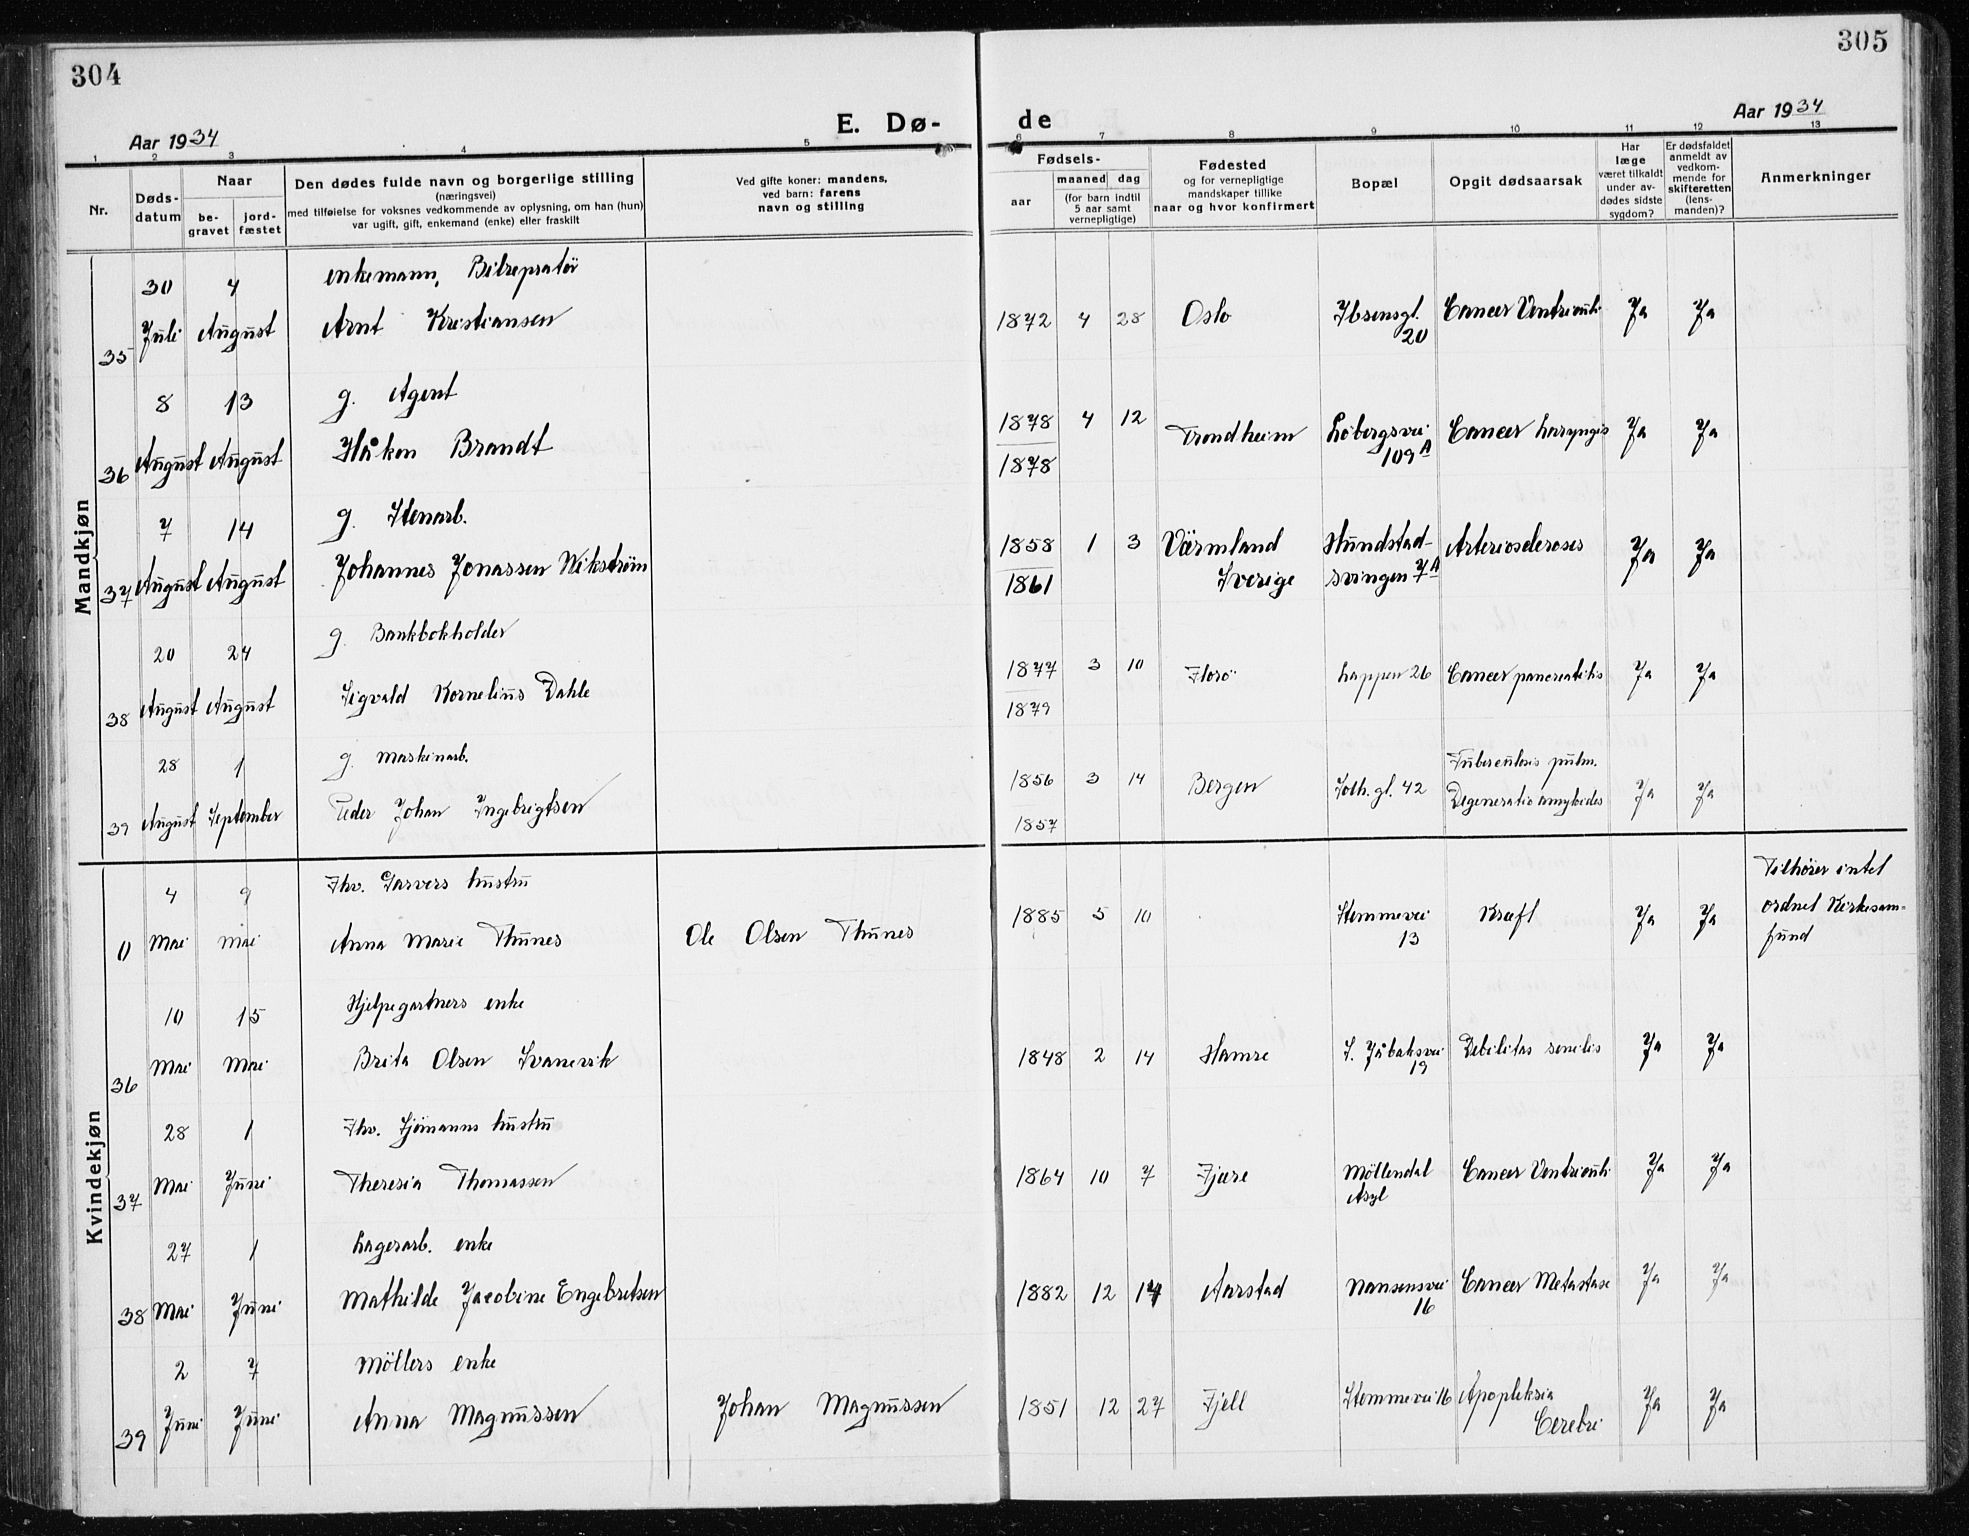 304
305
Aar 1934
E. Dø-
de
Aar 1934
1 2 3 4 5 6 7 8 9 10 11 12 13
Nr.
Døds-
datum
Naar
be-
gravet
jord-
fæstet
Den dødes fulde navn og borgerlige stilling
(næringsvei)
med tilføielse for voksnes vedkommende av oplysning, om han (hun)
var ugift, gift, enkemand (enke) eller fraskilt
Ved gifte koner: mandens,
ved barn: farens
navn og stilling
Fødsels-
aar
maaned dag
(for barn indtil
5 aar samt
vernepligtige)
Fødested
og for vernepligtige
mandskaper tillike
naar og hvor konfirmert
Bopæl
Opgit dødsaarsak
Har
læge
været tilkaldt
under av-
dødes sidste
sygdom?
Er dødsfaldet
anmeldt av
vedkom-
mende for
skifteretten
(lens-
manden)?
Anmerkninger
Mandkjøn
30 4 enkemann, Bilrepratör
35 Juli August Arnt Kristiansen 1872 4 28 Oslo Ibsensgl. Cancer Ventriculi Ja Ja
20
8 13 g. Agent
36 August August Håkon Brandt 1878 4 12 Trondheim Löbergsvei Cancer laryngis Ja Ja
1878 109 A
7 14 g. Stenarb.
37 August August Johannes Jonassen Wikström 1858 1 3 Värmland Hundstad- Arteriosclerosis Ja Ja
1861 Sverige svingen 7 A
20 24 g. Bankbokholder
38 August August Sigvald Kornelius Dahle 1877 3 10 Florö Lappen 26 Cancer pancreatitis Ja Ja
1879
28 1 g. Maskinarb. Tuberculosis pulm.
39 August September Peder Johan Ingebrigtsen 1856 3 14 Bergen Soth. gl. 42 Degeneratio amyloides Ja Ja
1857
Kvindekjøn
4 9 Fhv. Garvers hustru Tilhører intet
0 Mai Mai Anna Marie Thunes Ole Olsen Thunes 1885 5 10 Stemmevei Kræft Ja Ja ordnet Kirkesam-
13 fund
10 15 Hjelpegartners enke
36 Mai Mai Brita Olsen Svanevik 1848 2 14 Hamre Debilitas senilis Ja Ja
19
28 1 Fhv. Sjömanns hustru
37 Mai Juni Theresia Thomassen 1864 10 7 Fjære Möllendal Cancer Ventriculi Ja Ja
Asyl
27 1 Lagerarb. enke
38 Mai Juni Mathilde Jacobine Engebretsen 1882 12 14 Aarstad Nansensvei Cancer Metastase Ja Ja
16
2 7 Möllers enke
39 Juni Juni Anna Magnussen Johan Magnussen 1851 12 27 Fjell Stemmevei 16 Apopleksia Ja Ja
Cerebri